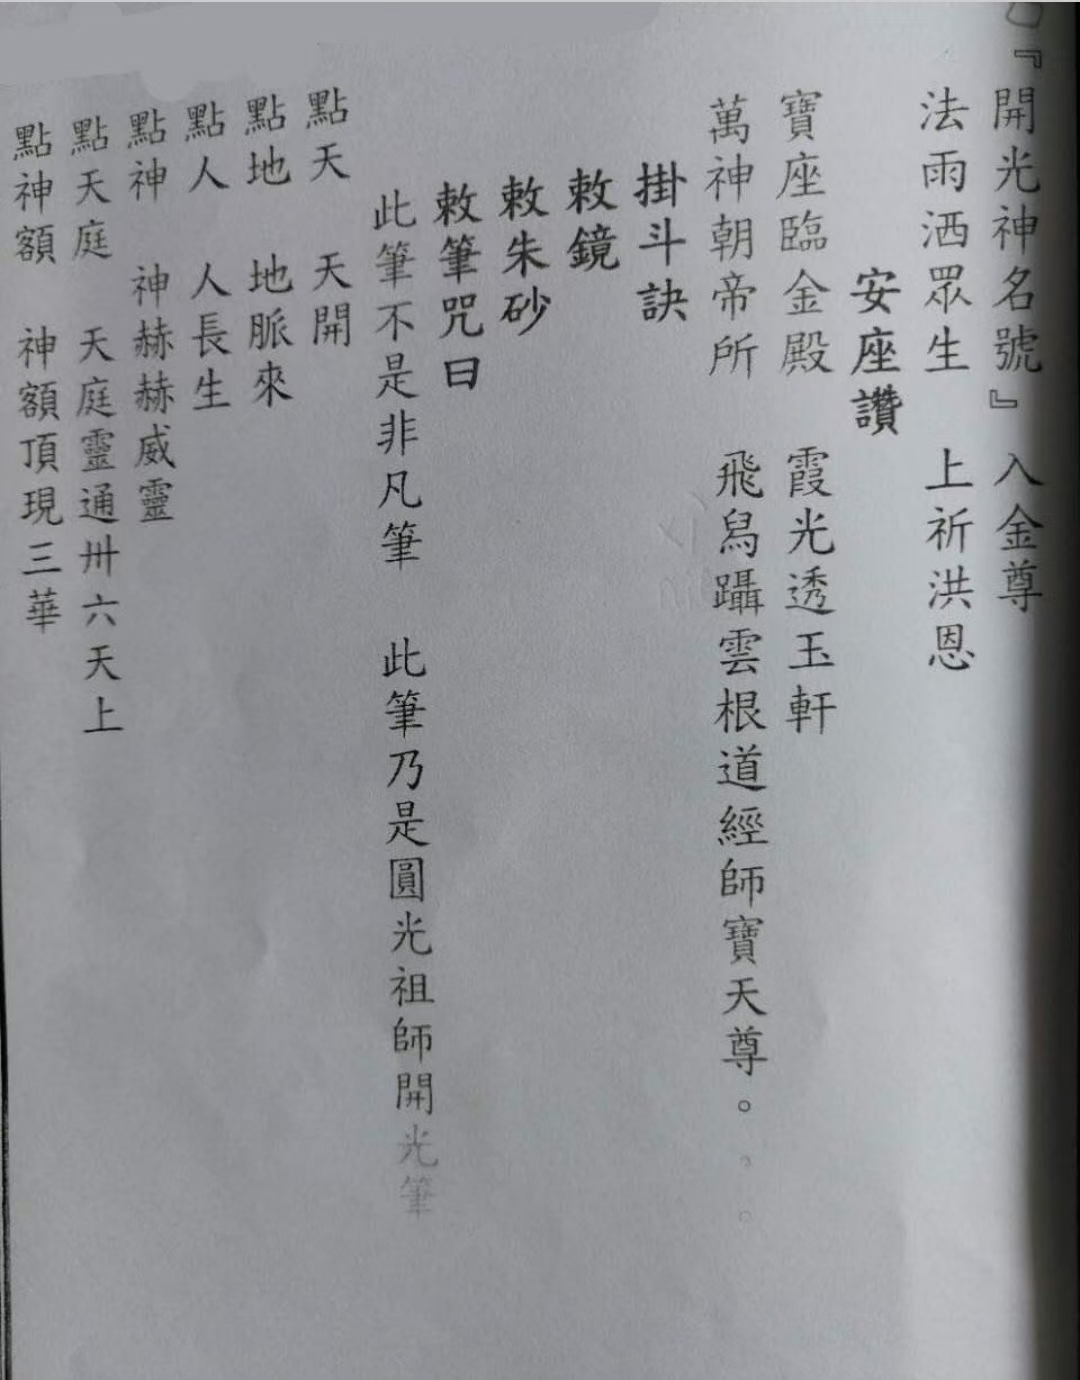 『開光神名號』入金尊
法雨洒眾生 上祈洪恩
安座讚
寶座臨金殿 霞光透玉軒
萬神朝帝所 飛舄躡雲根道經師寶天尊。。。
掛斗訣
敕鏡
敕朱砂
敕筆咒曰
此筆不是非凡筆 此筆乃是圓光祖師開光筆
點天 天開
點地 地脈來
點人 人長生
點神 神赫赫威靈
點天庭 天庭靈通卅六天上
點神額 神額頂現三華